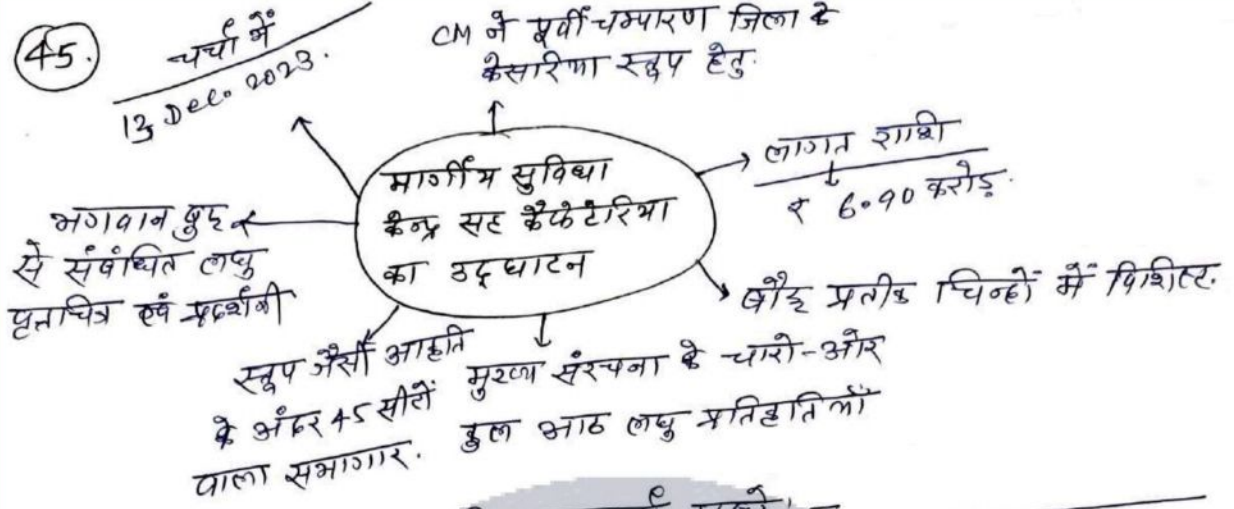 45.
चर्चा में
13 Dec. 2023.
CM ने पूर्वी चम्पारण जिला के
केसारिया स्तूप हेतु.
मार्गीय सुविधा
केन्द्र सह कैफेटेरिया
का उद्घाटन
लागत राशि
₹ 6.90 करोड़.
भगवान बुद्ध
से संबंधित लघु
वृत्तचित्र एवं प्रदर्शनी
बौद्ध प्रतीक चिन्हों में विशिष्ट.
स्तूप जैसी आकृति
के अंदर 45 सीटों
वाला सभागार.
मुख्य संरचना के चारो-ओर
कुल आठ लघु प्रतिकृतियाँ